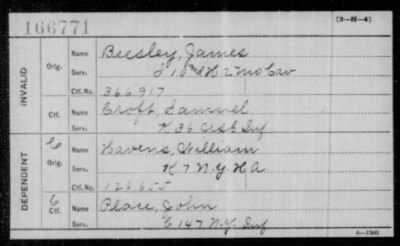 166771
(3-M-4)
INVALID
Orig.
Name Beesley, James
Serv. & H 2 Mo Cav
Ctf. No. 366917
Ctf.
Name Croft, Samuel
Serv. K 36 Inf
DEPENDENT
C
Orig.
Name Havens, William
Serv. K 7 N.Y. H A
Ctf. No. 126655
C
Ctf.
Name Place, John
Serv. C 147 N.Y. Inf